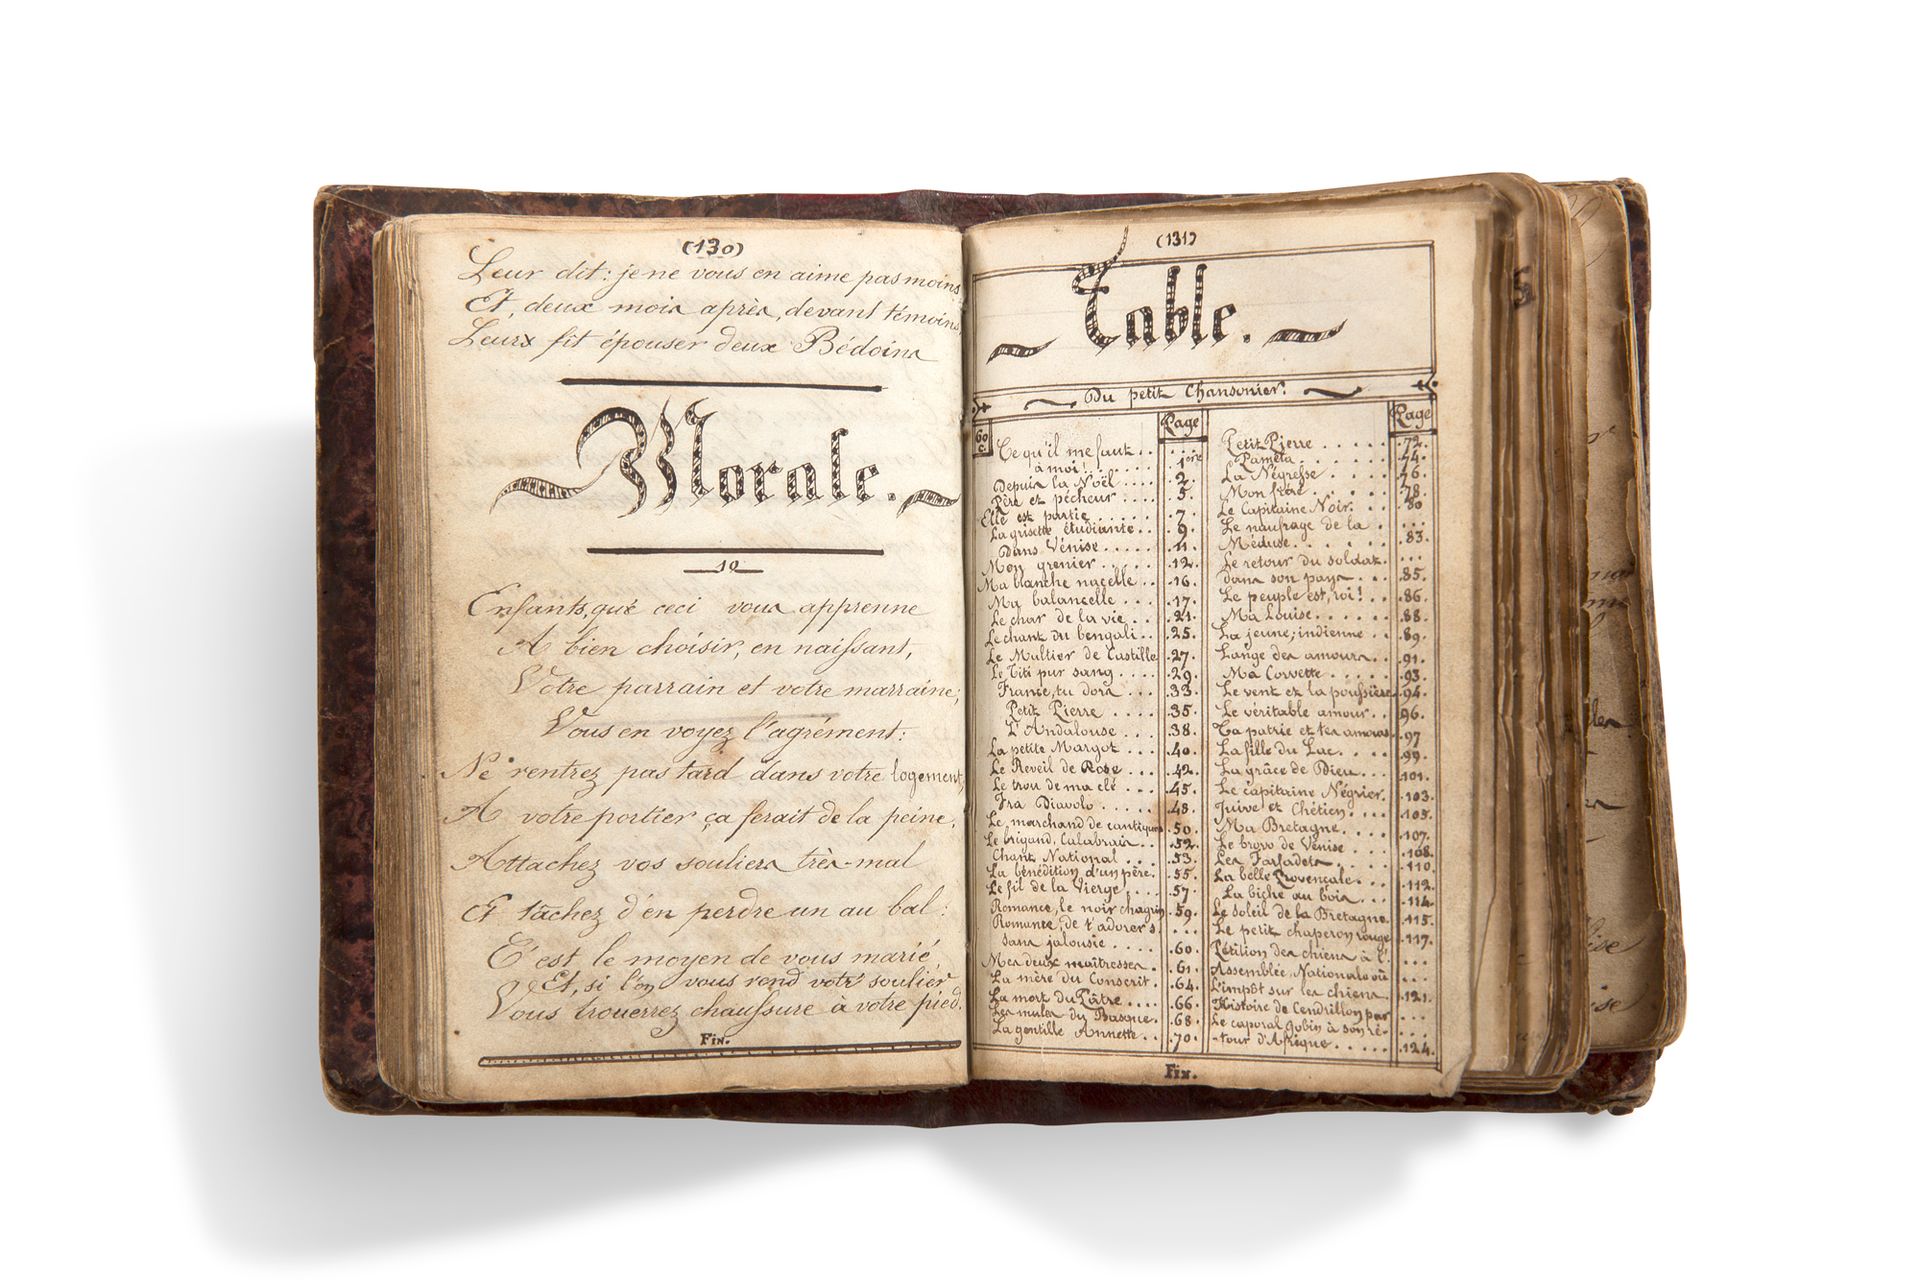 (130)
Leur dit: je ne vous en aime pas moins,
Et, deux mois après, devant témoins,
Leurs fit épouser deux Bédoins
Morale.
10
Enfants, que ceci vous apprenne
A bien choisir, en naissant,
Votre parrain et votre marraine;
Vous en voyez l'agrément:
Ne rentrez pas tard dans votre logement,
A votre portier ça ferait de la peine.
Attachez vos souliers très-mal
Et tâchez d'en perdre un au bal:
C'est le moyen de vous marié,
Et, si l'on vous rend votre soulier
Vous trouerrez chaussure à votre pied.
Fin.
(131)
Table.
Du petit Chansonier.
Page
60
c
Ce qu'il me faut . . .
à moi! . . . . 1ère
Depuis la Noël . . . . 2.
Père et pécheur . . . . 5.
Elle est partie . . . . . 7.
La grisette étudiante . . 9.
Dans Vénise . . . . . 11.
Mon grenier . . . . . 12.
Ma blanche nacelle . . . 16.
Ma balancelle . . . 17.
Le char de la vie . . . 21.
Le chant du bengali . . 25.
Le Multier de Castille 27.
Le Titi pur sang . . . . 29.
France, tu dors . . . 33.
Petit Pierre . . . . 35.
L'Andalouse . . . . 38.
La petite Margot . . . . 40.
Le Reveil de Rose . . . 42.
Le trou de ma clé . . . 45.
Fra Diavolo . . . . . 48.
Le marchand de cantiques 50.
Le brigand, Calabrais . . . 52.
Chant National . . . 53.
La bénédition d'un père. 55.
Le fil de la Vierge . . . 57.
Romance, le noir chagrin 59.
Romance, de t'adorer s. . . .
sans jalousie . . . . 60.
Mes deux maîtresses . 61.
La mère du Conscrit. . 64.
La mort du Pâtre . . . 66.
Les mules du Basque. . 68.
La gentille Annette . . 70.
Page
Petit Pierre . . . . . 72.
Paméla . . . . . 74.
La Négresse . . . 76.
Mon frère . . . . . 78.
Le Capitaine Noir. . . 80
Le naufrage de la . . . .
Méduse. . . . . . 83.
Le retour du soldat . . .
dans son pays . . . 85.
Le peuple est, roi! . . 86.
Ma Louise . . . . . 88.
La jeune, indienne . . 89.
L'ange des amours . . 91.
Ma Corvette . . . . .93.
Le vent et la poussière 94.
Le véritable amour . . 96.
Ta patrie et tes amours 97
La fille du Lac . . . 99.
La grâce de Dieu . . . 101.
Le capitaine Négrier. 103.
Juive et Chétien . . . 105.
Ma Bretagne . . . . 107.
Le bravo de Vénise . . 108.
Les Farfadets . . . . 110.
La belle Provençale . . . 112.
La biche au bois . . . 114.
Le soleil de la Bretagne. 115.
Le petit chaperon rouge 117.
Pétition des chiens à l' . . .
Assemblée Nationale où . . .
L'impôt sur les chiens. 121.
Histoire de Cendrillon par . . .
Le caporal Gobin à son ré- . . .
-tour d'Afrique . . . . . 124.
Fin.